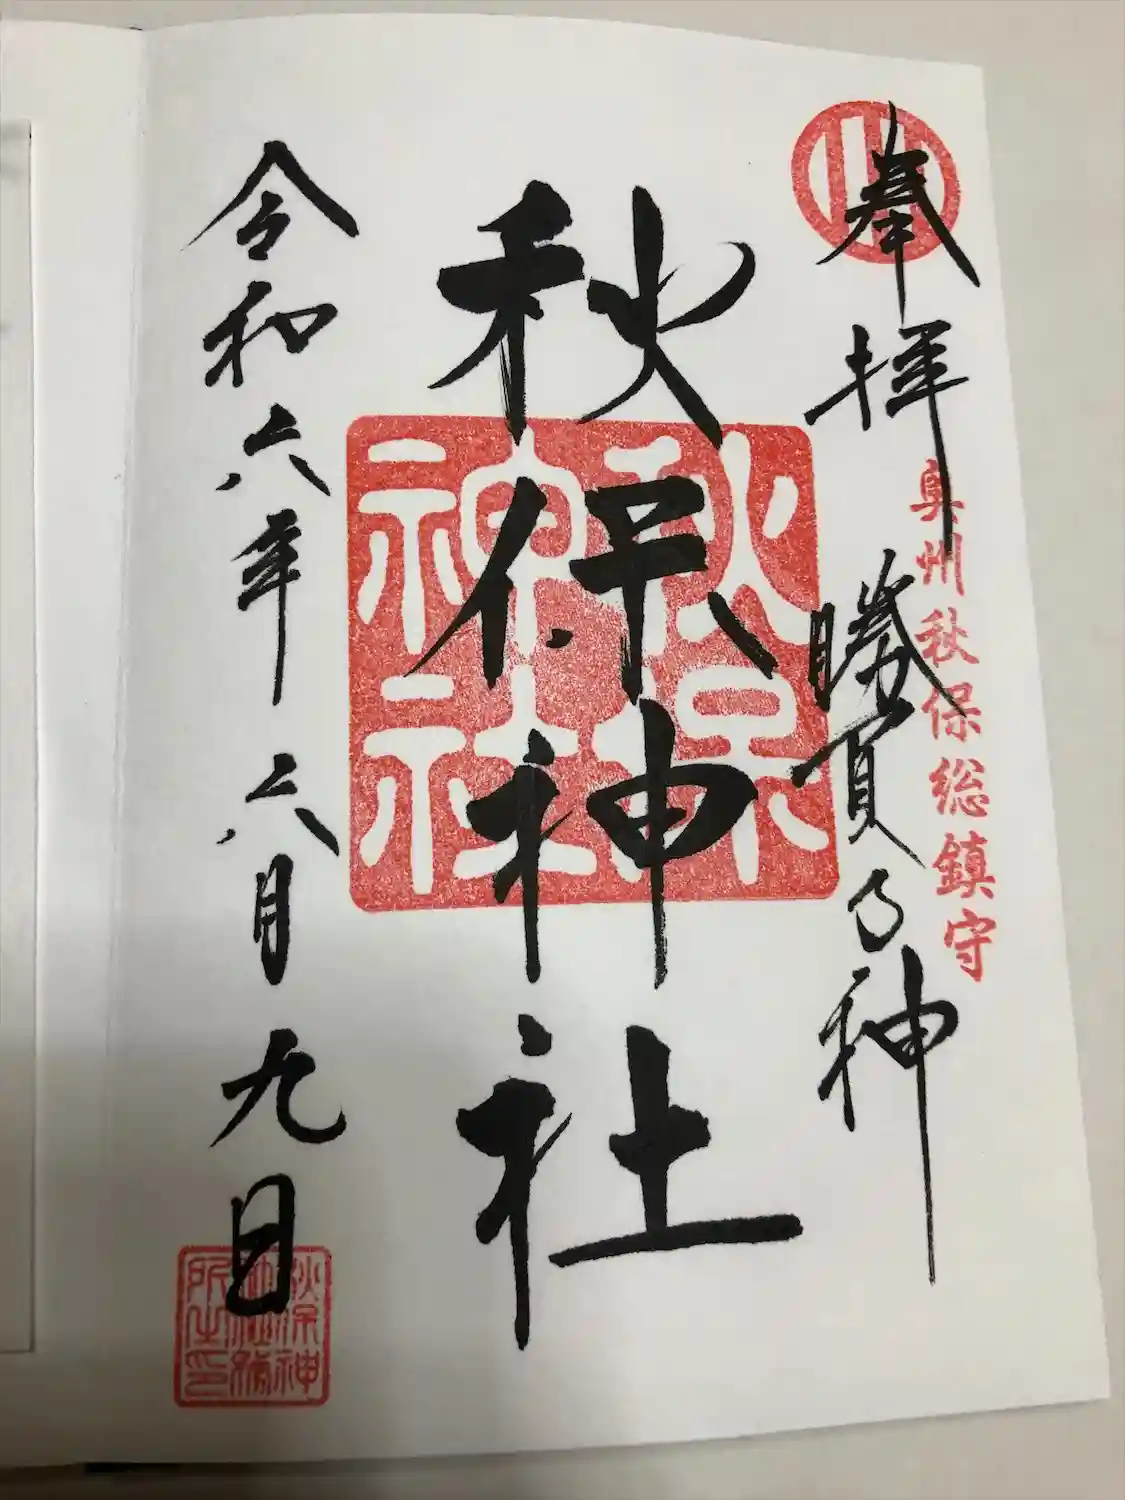 奉拝 勝負の神
奥州秋保総鎮守
秋保神社
秋保神社
令和六年 六月 九日
秋保神社社務所之印